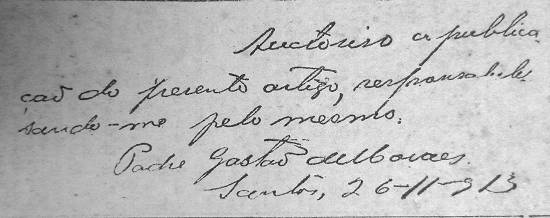 Auctoriso a publica
ção do presente artigo, responsabili
sando-me pelo mesmo.
Padre Gastão de Moraes.
Santos, 26-11-913